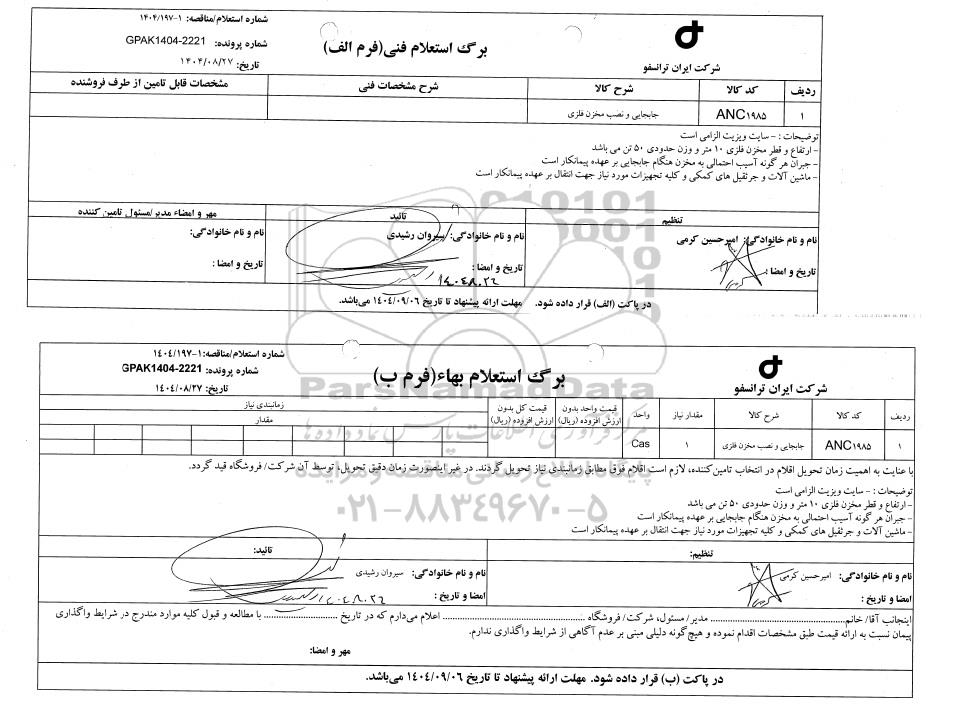 شماره استعلام/مناقصه: ۱-۱۴۰۴/۱۹۷
برگ استعلام فنی(فرم الف)
شماره پرونده: GPAK1404-2221
شرکت ایران ترانسفو
تاریخ: ۱۴۰۴/۰۸/۲۷
ردیف کد کالا شرح کالا شرح مشخصات فنی مشخصات قابل تامین از طرف فروشنده
۱ ANC۱۹۸۵ جابجایی و نصب مخزن فلزی
توضیحات : - سایت ویزیت الزامی است
- ارتفاع و قطر مخزن فلزی ۱۰ متر و وزن حدودی ۵۰ تن می باشد
- جبران هر گونه آسیب احتمالی به مخزن هنگام جابجایی بر عهده پیمانکار است
- ماشین آلات و جرثقیل های کمکی و کلیه تجهیزات مورد نیاز جهت انتقال بر عهده پیمانکار است
تنظیم تائید مهر و امضاء مدیر/مسئول تامین کننده
نام و نام خانوادگی: امیرحسین کرمی نام و نام خانوادگی: سیروان رشیدی نام و نام خانوادگی:
تاریخ و امضا : تاریخ و امضا : ۱۴۰۴.۸.۲۶ تاریخ و امضا :
در پاکت (الف) قرار داده شود. مهلت ارائه پیشنهاد تا تاریخ ۱۴۰۴/۰۹/۰۶ می‌باشد.
شماره استعلام/مناقصه: ۱-۱۴۰۴/۱۹۷
برگ استعلام بهاء(فرم ب)
شماره پرونده: GPAK1404-2221
شرکت ایران ترانسفو
تاریخ: ۱۴۰۴/۰۸/۲۷
ردیف کد کالا شرح کالا مقدار نیاز واحد قیمت واحد بدون ارزش افزوده (ریال) قیمت کل بدون ارزش افزوده (ریال) زمانبندی نیاز
مقدار
۱ ANC۱۹۸۵ جابجایی و نصب مخزن فلزی ۱ Cas
با عنایت به اهمیت زمان تحویل اقلام در انتخاب تامین‌کننده، لازم است اقلام فوق مطابق زمانبندی نیاز تحویل گردند. در غیر اینصورت زمان دقیق تحویل، توسط آن شرکت/ فروشگاه قید گردد.
توضیحات : - سایت ویزیت الزامی است
- ارتفاع و قطر مخزن فلزی ۱۰ متر و وزن حدودی ۵۰ تن می باشد
- جبران هر گونه آسیب احتمالی به مخزن هنگام جابجایی بر عهده پیمانکار است
- ماشین آلات و جرثقیل های کمکی و کلیه تجهیزات مورد نیاز جهت انتقال بر عهده پیمانکار است
تنظیم: تائید:
نام و نام خانوادگی: امیرحسین کرمی نام و نام خانوادگی: سیروان رشیدی
امضا و تاریخ : امضا و تاریخ : ۱۴۰۴.۸.۲۶
اینجانب آقا/ خانم........................ مدیر/ مسئول، شرکت/ فروشگاه ........................ اعلام می‌دارم که در تاریخ ................ با مطالعه و قبول کلیه موارد مندرج در شرایط واگذاری
پیمان نسبت به ارائه قیمت طبق مشخصات اقدام نموده و هیچ‌گونه دلیلی مبنی بر عدم آگاهی از شرایط واگذاری ندارم.
مهر و امضا:
در پاکت (ب) قرار داده شود. مهلت ارائه پیشنهاد تا تاریخ ۱۴۰۴/۰۹/۰۶ می‌باشد.
ParsNamadData
پایگاه اطلاع رسانی مناقصه و مزایده
۰۲۱-۸۸۳۴۹۶۷۰-۵